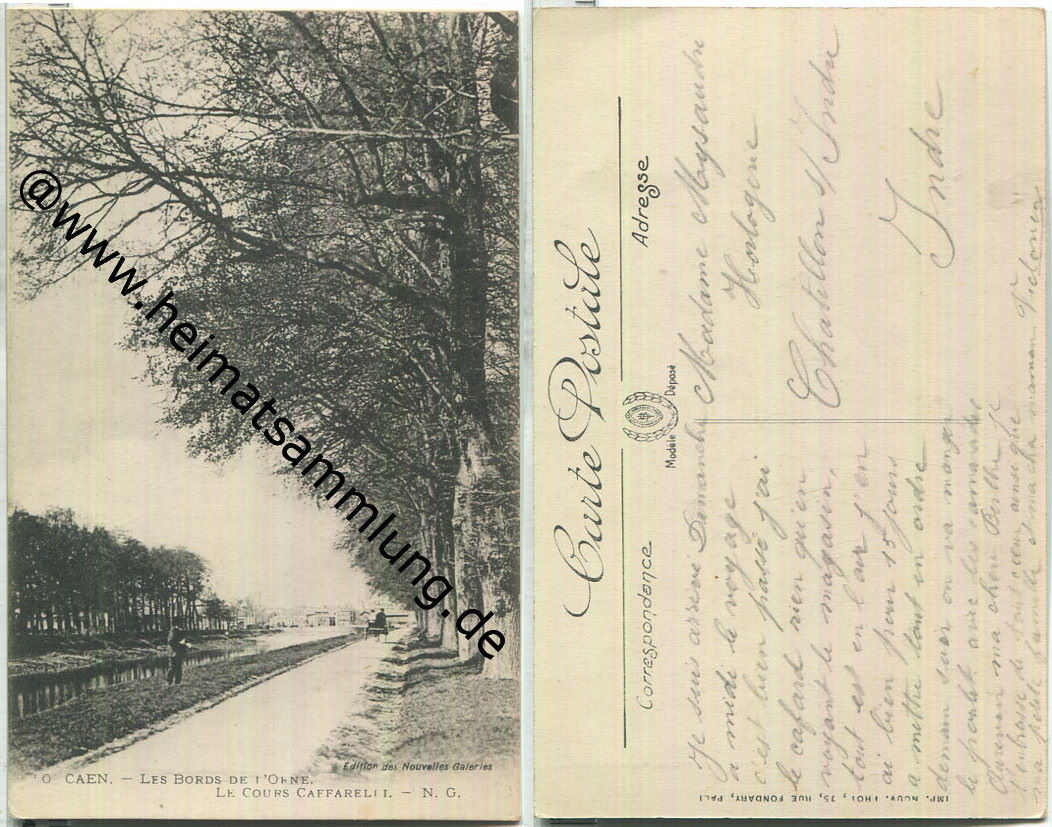 @www.heimatsammlung.de
CAEN. – LES BORDS DE L'ORNE.
LE COURS CAFFARELLI. – N. G.
Edition des Nouvelles Galeries
Carte Postale
Correspondance
Adresse
Modèle Déposé
Madame Mysandre
Horlogerie
Chatillon s/ Indre
Indre
Je suis arrivée Dimanche
a midi le voyage
c'est bien passé j'ai
le cafard rien qu'en
voyant le magasin,
tout est en l'air j'en
ai bien pour 15 jours
a mettre tout en ordre
demain soir on va manger
le poulet avec les camarades
ma chère Berthe je
t'embrasse de tout coeur ainsi que
ma petite famille et ma chère maman
IMP. NOUV. PHOT., 75, RUE FONDARY, PARI